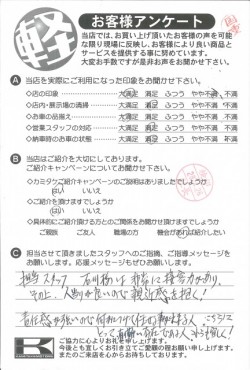 軽
お客様アンケート
当店では、お買い上げ頂いたお客様の声を可能
な限り現場に反映し、お客様により良い商品と
サービスを提供する事に努めています。
大変お手数ですが是非お声をお聞かせ下さい。
A 当店を実際にご利用になった印象をお聞かせ下さい。
◇店の印象 大満足 満足 ふつう やや不満 不満
◇店内・展示場の清掃 大満足 満足 ふつう やや不満 不満
◇お車の品揃え 大満足 満足 ふつう やや不満 不満
◇営業スタッフの対応 大満足 満足 ふつう やや不満 不満
◇納車時のお車の状態 大満足 満足 ふつう やや不満 不満
B 当店はご紹介を大切にしております。
ご紹介キャンペーンについてお聞かせ下さい。
◇カミタケご紹介キャンペーンのご説明はありましたでしょうか
はい いいえ
◇ご紹介を頂けますでしょうか
はい いいえ
◇具体的にご紹介頂ける方とのご関係をお聞かせ頂けますでしょうか
ご親族 ご友人 職場の方 機会があれば紹介したい
C 担当させて頂きましたスタッフへのご指摘、ご指導メッセージを
お願いします。応援メッセージもぜひお願いします。
担当スタッフ
その上、人当りが良いので親近感を抱く!
責任感が強いので
K
ご協力に心よりお礼を申し上げます。
今後とも宜しくお引き立てご愛顧の程お願い申し上げます。
またのご来店を心からお待ちしております。